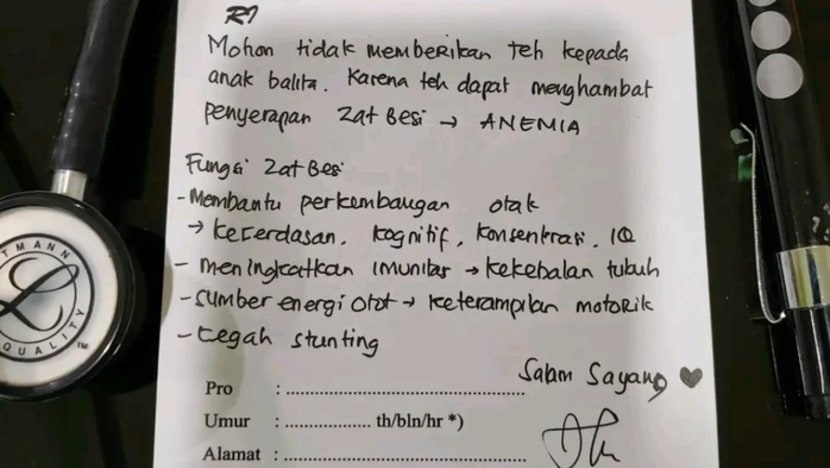 R/
Mohon tidak memberikan teh kepada
anak balita. Karena teh dapat menghambat
penyerapan zat Besi → ANEMIA
Fungsi Zat Besi
- Membantu perkembangan otak
→ kecerdasan, kognitif, konsentrasi, IQ
- meningkatkan imunitas → kekebalan tubuh
- sumber energi otot → keterampilan motorik
- cegah stunting
Salam Sayang ♥
Pro : ..........................................
Umur : ............... th/bln/hr *)
Alamat : ..........................................
TMANN
QUALITY
TM